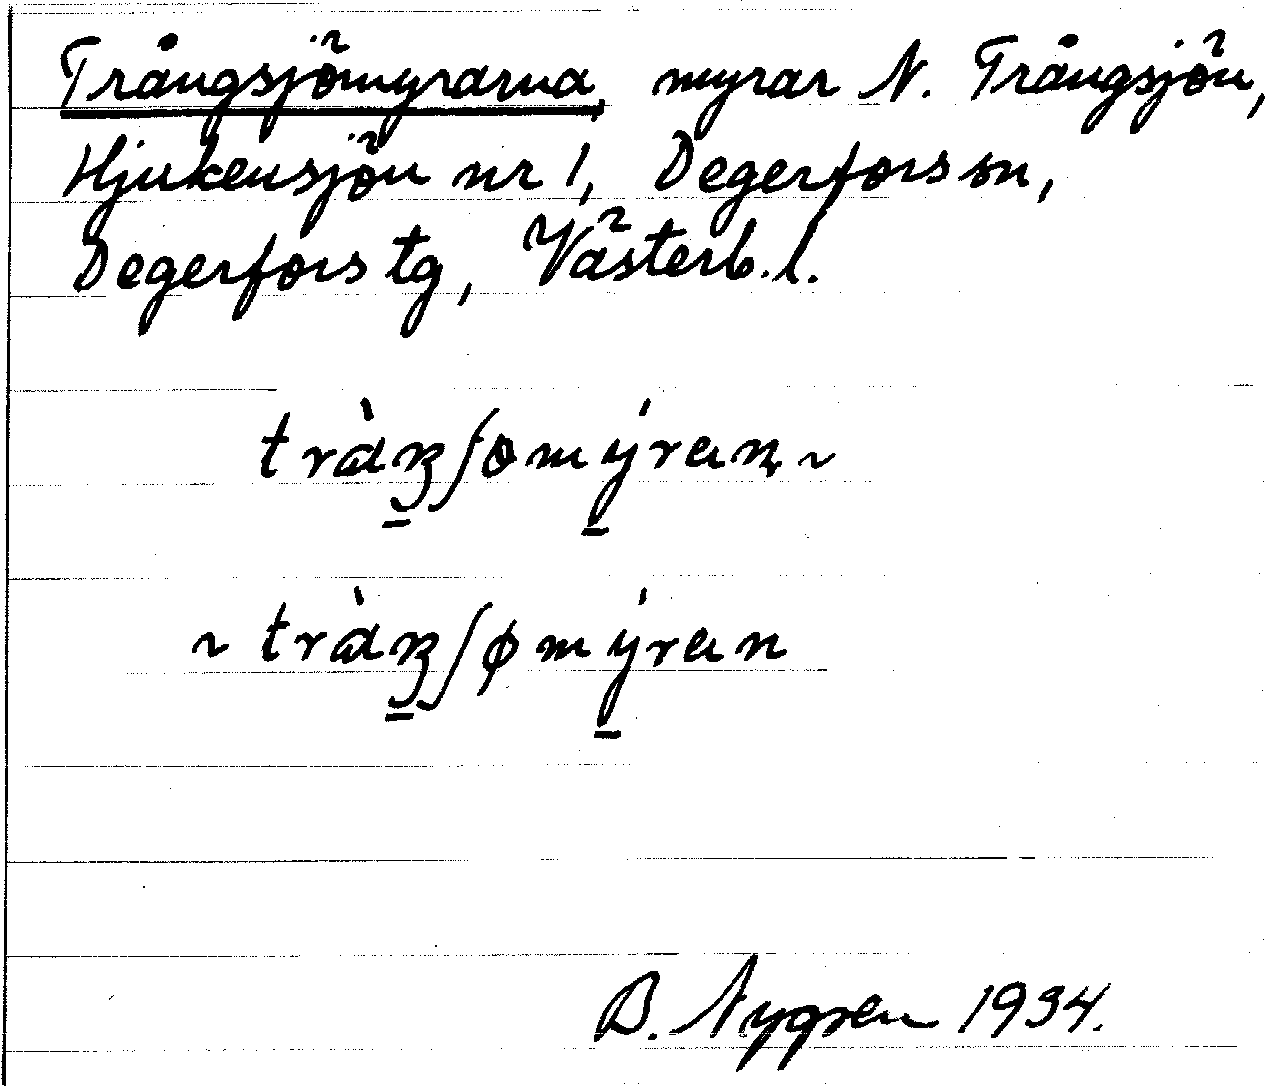 Trångsjömyrarna, myrar N. Trångsjön,
Hjukensjön nr 1, Degerfors sn,
Degerfors tg, Västerb. l.
B. Nygren 1934.